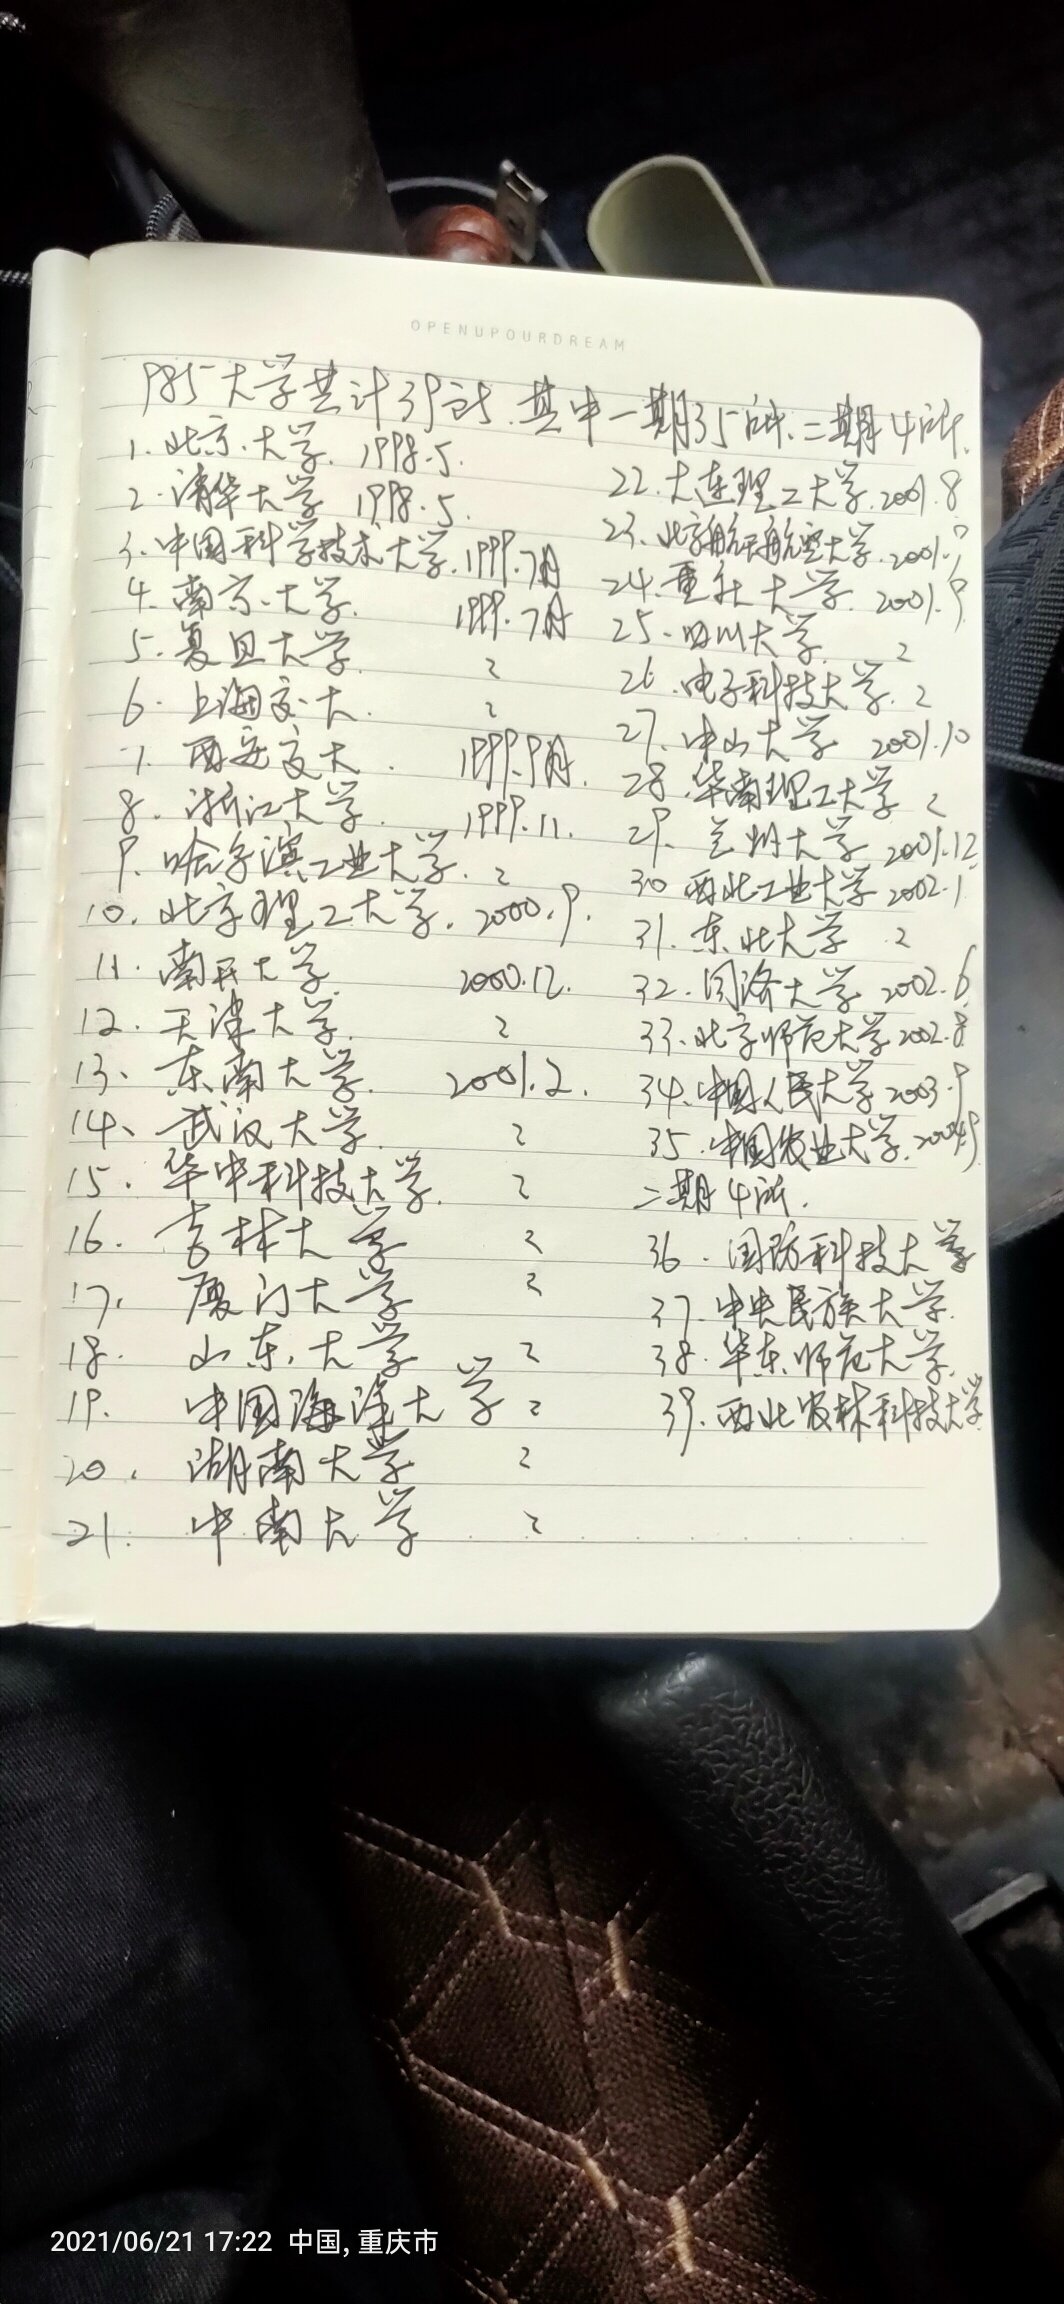 OPENUPOURDREAM
985大学共计39所.其中一期35所.二期4所.
1.北京大学. 1998.5.
2.清华大学 1998.5.
3.中国科学技术大学.1999.7月
4.南京大学. 1999.7月
5.复旦大学. 〃
6.上海交大. 〃
7.西安交大. 1999.9月.
8.浙江大学. 1999.11.
9.哈尔滨工业大学. 〃
10.北京理工大学. 2000.9.
11.南开大学. 2000.12.
12.天津大学. 〃
13.东南大学. 2001.2.
14、武汉大学. 〃
15.华中科技大学. 〃
16.吉林大学 〃
17.厦门大学 〃
18.山东大学 〃
19.中国海洋大学 〃
20.湖南大学 〃
21.中南大学 〃
22.大连理工大学.2001.8
23.北京航天航空大学.2001.9
24.重庆大学. 2001.9.
25.四川大学. 〃
26.电子科技大学. 〃
27.中山大学 2001.10
28.华南理工大学 〃
29.兰州大学 2001.12
30 西北工业大学2002.1
31.东北大学 〃
32.同济大学 2002.6
33.北京师范大学2002.8
34.中国人民大学2003.9
35.中国农业大学.2004.9
二期4所.
36.国防科技大学
37.中央民族大学.
38.华东师范大学.
39.西北农林科技大学
2021/06/21 17:22 中国, 重庆市